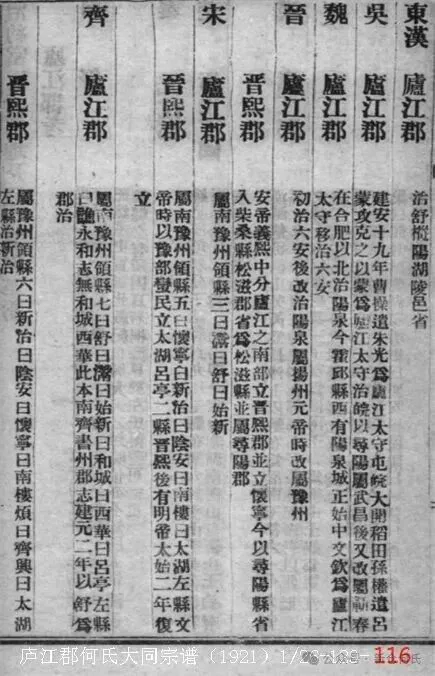 東漢　廬江郡　治舒樅陽湖陵邑省
吳　廬江郡　建安十九年曹操遣朱光為廬江太守屯皖大開稻田孫權遣呂
蒙攻克之以蒙為廬江太守治皖以尋陽屬武昌後又改屬蘄春
魏　廬江郡　在合肥以北治陽泉今霍邱縣西有陽泉城正始中文欽為廬江
太守移治六安
晉　廬江郡　初治六安後改治陽泉屬揚州元帝時改屬豫州
晉熙郡　安帝義熙中分廬江之南部立晉熙郡並立懷寧今以尋陽縣省
入柴桑縣松滋郡省為松滋縣並屬尋陽郡
宋　廬江郡　屬南豫州領縣三曰灊曰舒曰始新
晉熙郡　屬南豫州領縣五曰懷寧曰新冶曰陰安曰南樓曰太湖左縣文
帝時以豫部蠻民立太湖呂亭二縣晉熙後有明帝太始二年復
立
齊　廬江郡　屬南豫州領縣七曰舒曰灊曰始新曰和城曰西華曰呂亭左縣
曰譙永和志無和城西華此本南齊書州郡志建元二年以舒為
郡治
晉熙郡　屬豫州領縣六曰新冶曰陰安曰懷寧曰南樓煩曰齊興曰太湖
左縣治新冶
庐江郡何氏大同宗谱（1921）1/26-139-116